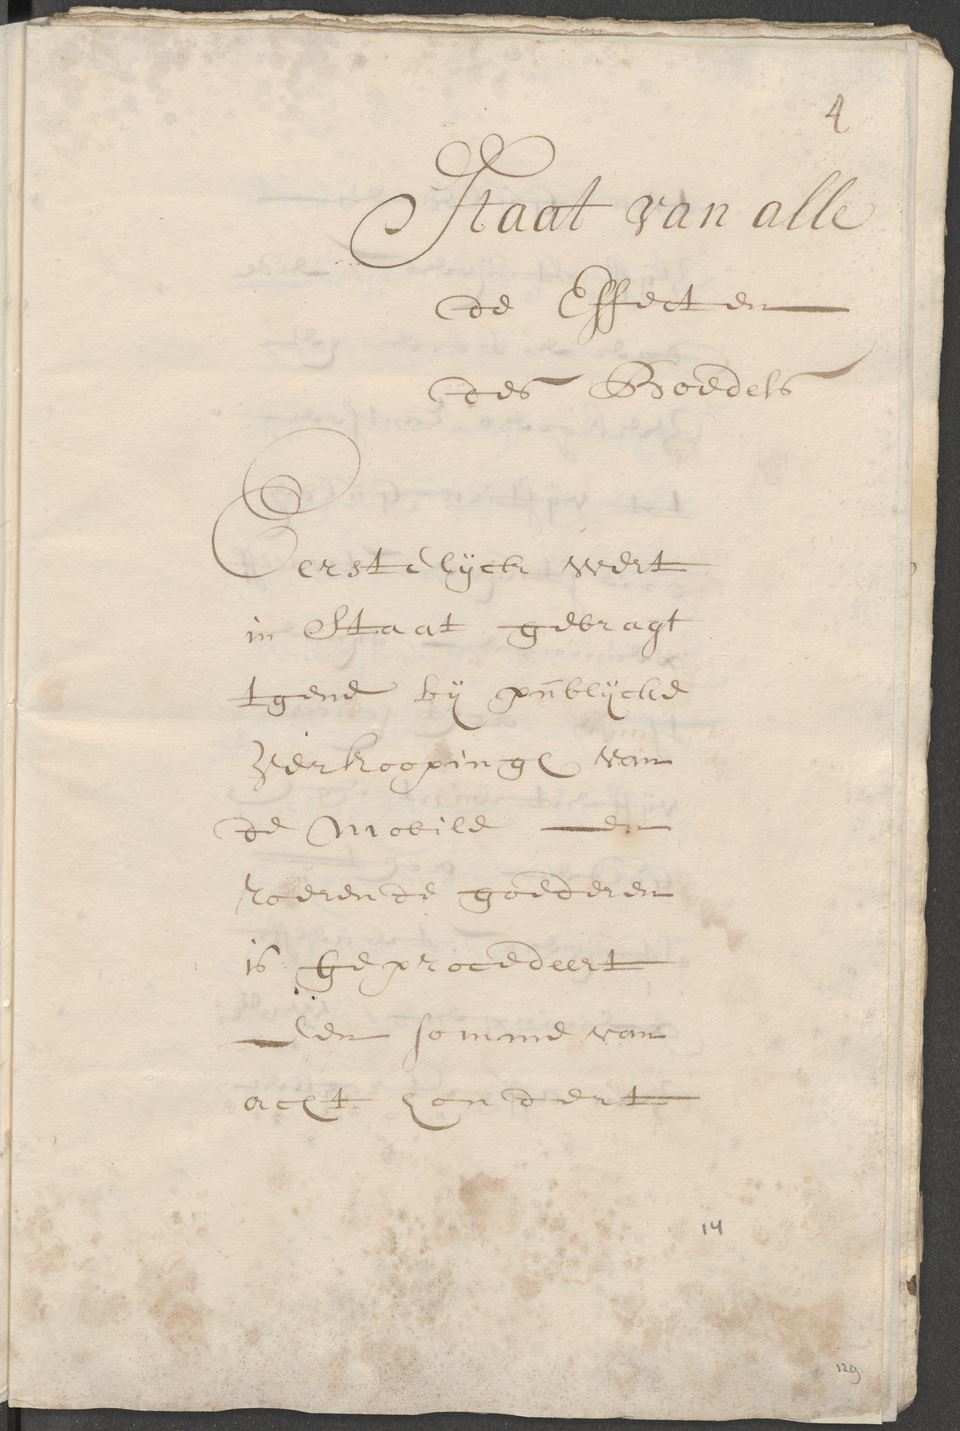 4
Staat van alle
de Effecten
des Boedels
Eerstelijck wert
in Staat gebragt
tgene bij publijcke
Verkoopinge van
de Mobile en
roerende goederen
is geprocedeert
den somme van
acht hondert
14
129